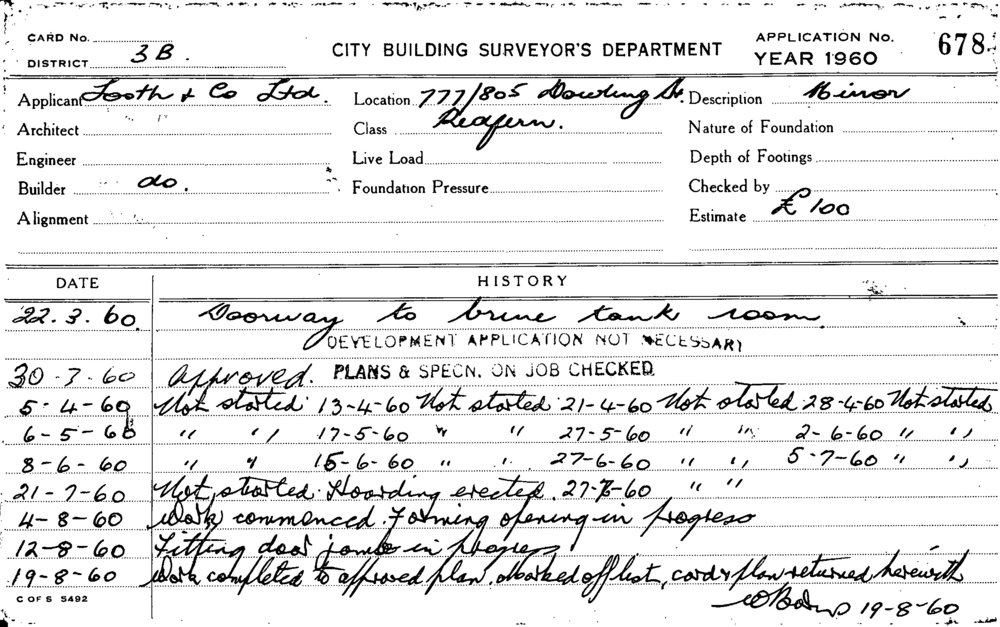 CARD No.
DISTRICT 3B.
CITY BUILDING SURVEYOR'S DEPARTMENT
APPLICATION No. 678
YEAR 1960
Applicant Tooth & Co Ltd. Location 777/805 Dowling St. Description Minor
Architect Class Redfern. Nature of Foundation
Engineer Live Load Depth of Footings
Builder do. Foundation Pressure Checked by
Alignment Estimate £100
DATE HISTORY
22.3.60. Doorway to brine tank room
DEVELOPMENT APPLICATION NOT NECESSARY
30-3-60 Approved. PLANS & SPECN. ON JOB CHECKED
5-4-60 Not started 13-4-60 Not started 21-4-60 Not started 28-4-60 Not started
6-5-60 " " 17-5-60 " " 27-5-60 " " 2-6-60 " "
8-6-60 " " 15-6-60 " " 27-6-60 " " 5-7-60 " "
21-7-60 Not started. Hoarding erected. 27-7-60 " "
4-8-60 Work commenced. Forming opening in progress
12-8-60 Fitting door jambs in progress
19-8-60 Work completed to approved plan, marked off list, card & plan returned herewith
19-8-60
C OF S 5492